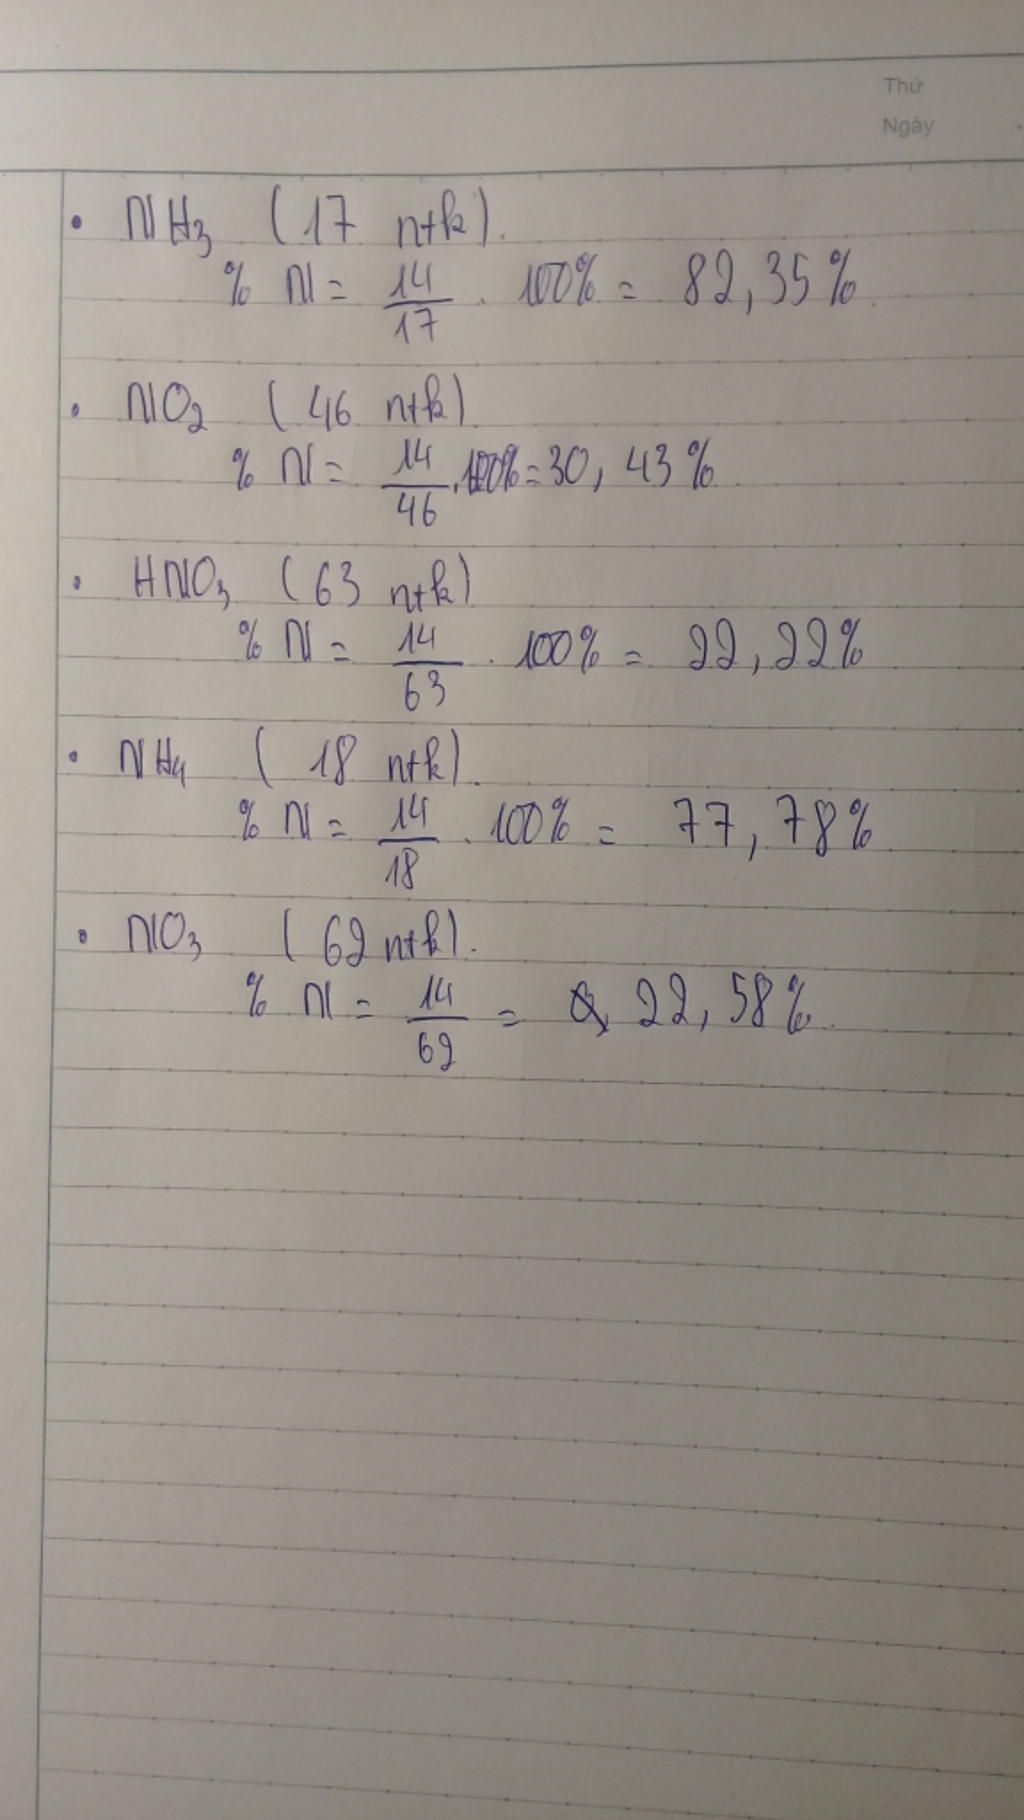 Thứ
Ngày
• NH₃ (17 n+k).
% N = 14/17 . 100% = 82,35%.
• NO₂ (46 n+k).
% N = 14/46 . 100% = 30,43%.
• HNO₃ (63 n+k)
% N = 14/63 . 100% = 22,22%
• NH₄ (18 n+k).
% N = 14/18 . 100% = 77,78%
• NO₃ (62 n+k).
% N = 14/62 = 22,58%.